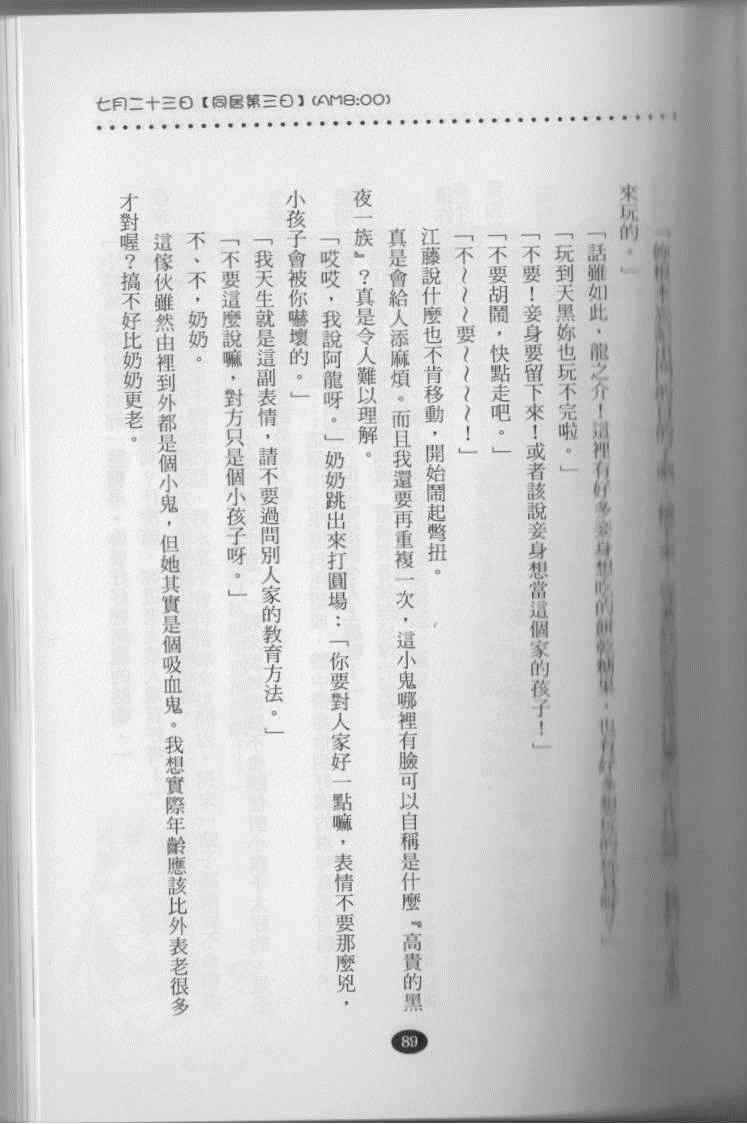 七月二十三日【同居第三日】(AM8:00)
來玩的。」
「話雖如此，龍之介！這裡有好多妾身想吃的餅乾糖果，也有好多想玩的玩具呢？」
「玩到天黑妳也玩不完啦。」
「不要！妾身要留下來！或者該說妾身想當這個家的孩子！」
「不要胡鬧，快點走吧。」
「不～～～要～～～～！」
江藤說什麼也不肯移動，開始鬧起彆扭。
真是會給人添麻煩。而且我還要再重複一次，這小鬼哪裡有臉可以自稱是什麼『高貴的黑
夜一族』？真是令人難以理解。
「哎哎，我說阿龍呀。」奶奶跳出來打圓場：「你要對人家好一點嘛，表情不要那麼兇，
小孩子會被你嚇壞的。」
「我天生就是這副表情，請不要過問別人家的教育方法。」
「不要這麼說嘛，對方只是個小孩子呀。」
不、不，奶奶。
這傢伙雖然由裡到外都是個小鬼，但她其實是個吸血鬼。我想實際年齡應該比外表老很多
才對喔？搞不好比奶奶更老。
89